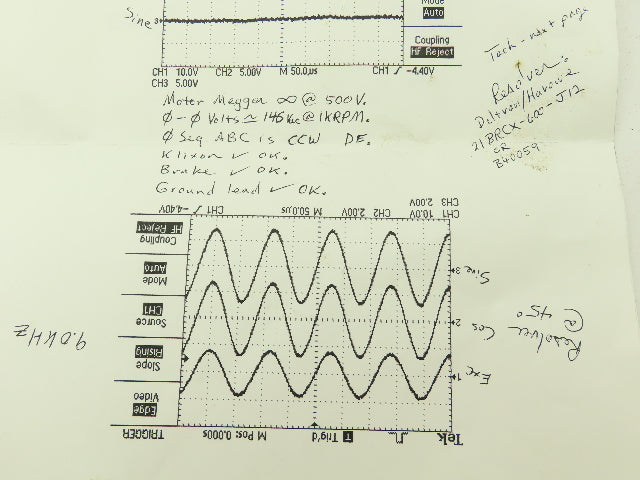 Mode
Auto
Coupling
HF Reject
Sine 3
CH1 10.0V CH2 5.00V M 50.0µs CH1 / -4.40V
CH3 5.00V
Tach - next page
Resolver:
Deltron/Harowe
21BRCX-600-J12
OR
B40059
Motor Megger ∞ @ 500V.
Ø-Ø Volts ≃ 146 Vac @ 1KRPM.
Ø Seq ABC is CCW DE.
Klixon ✓ OK.
Brake ✓ OK.
Ground lead ✓ OK.
Resolver
@ 45°
9.0KHz
Tek Trig'd M Pos: 0.000s TRIGGER
Edge
Video
Slope
Rising
Source
CH1
Mode
Auto
Coupling
HF Reject
Exc 1
Cos 2
Sine 3
CH1 10.0V CH2 2.00V M 50.0µs CH1 / -4.40V
CH3 2.00V